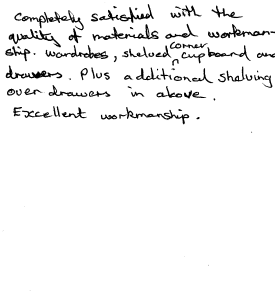 completely satisfied with the
quality of materials and workman-
ship. wardrobes, shelved corner cupboard and
drawers. Plus additional shelving
over drawers in above.
Excellent workmanship.